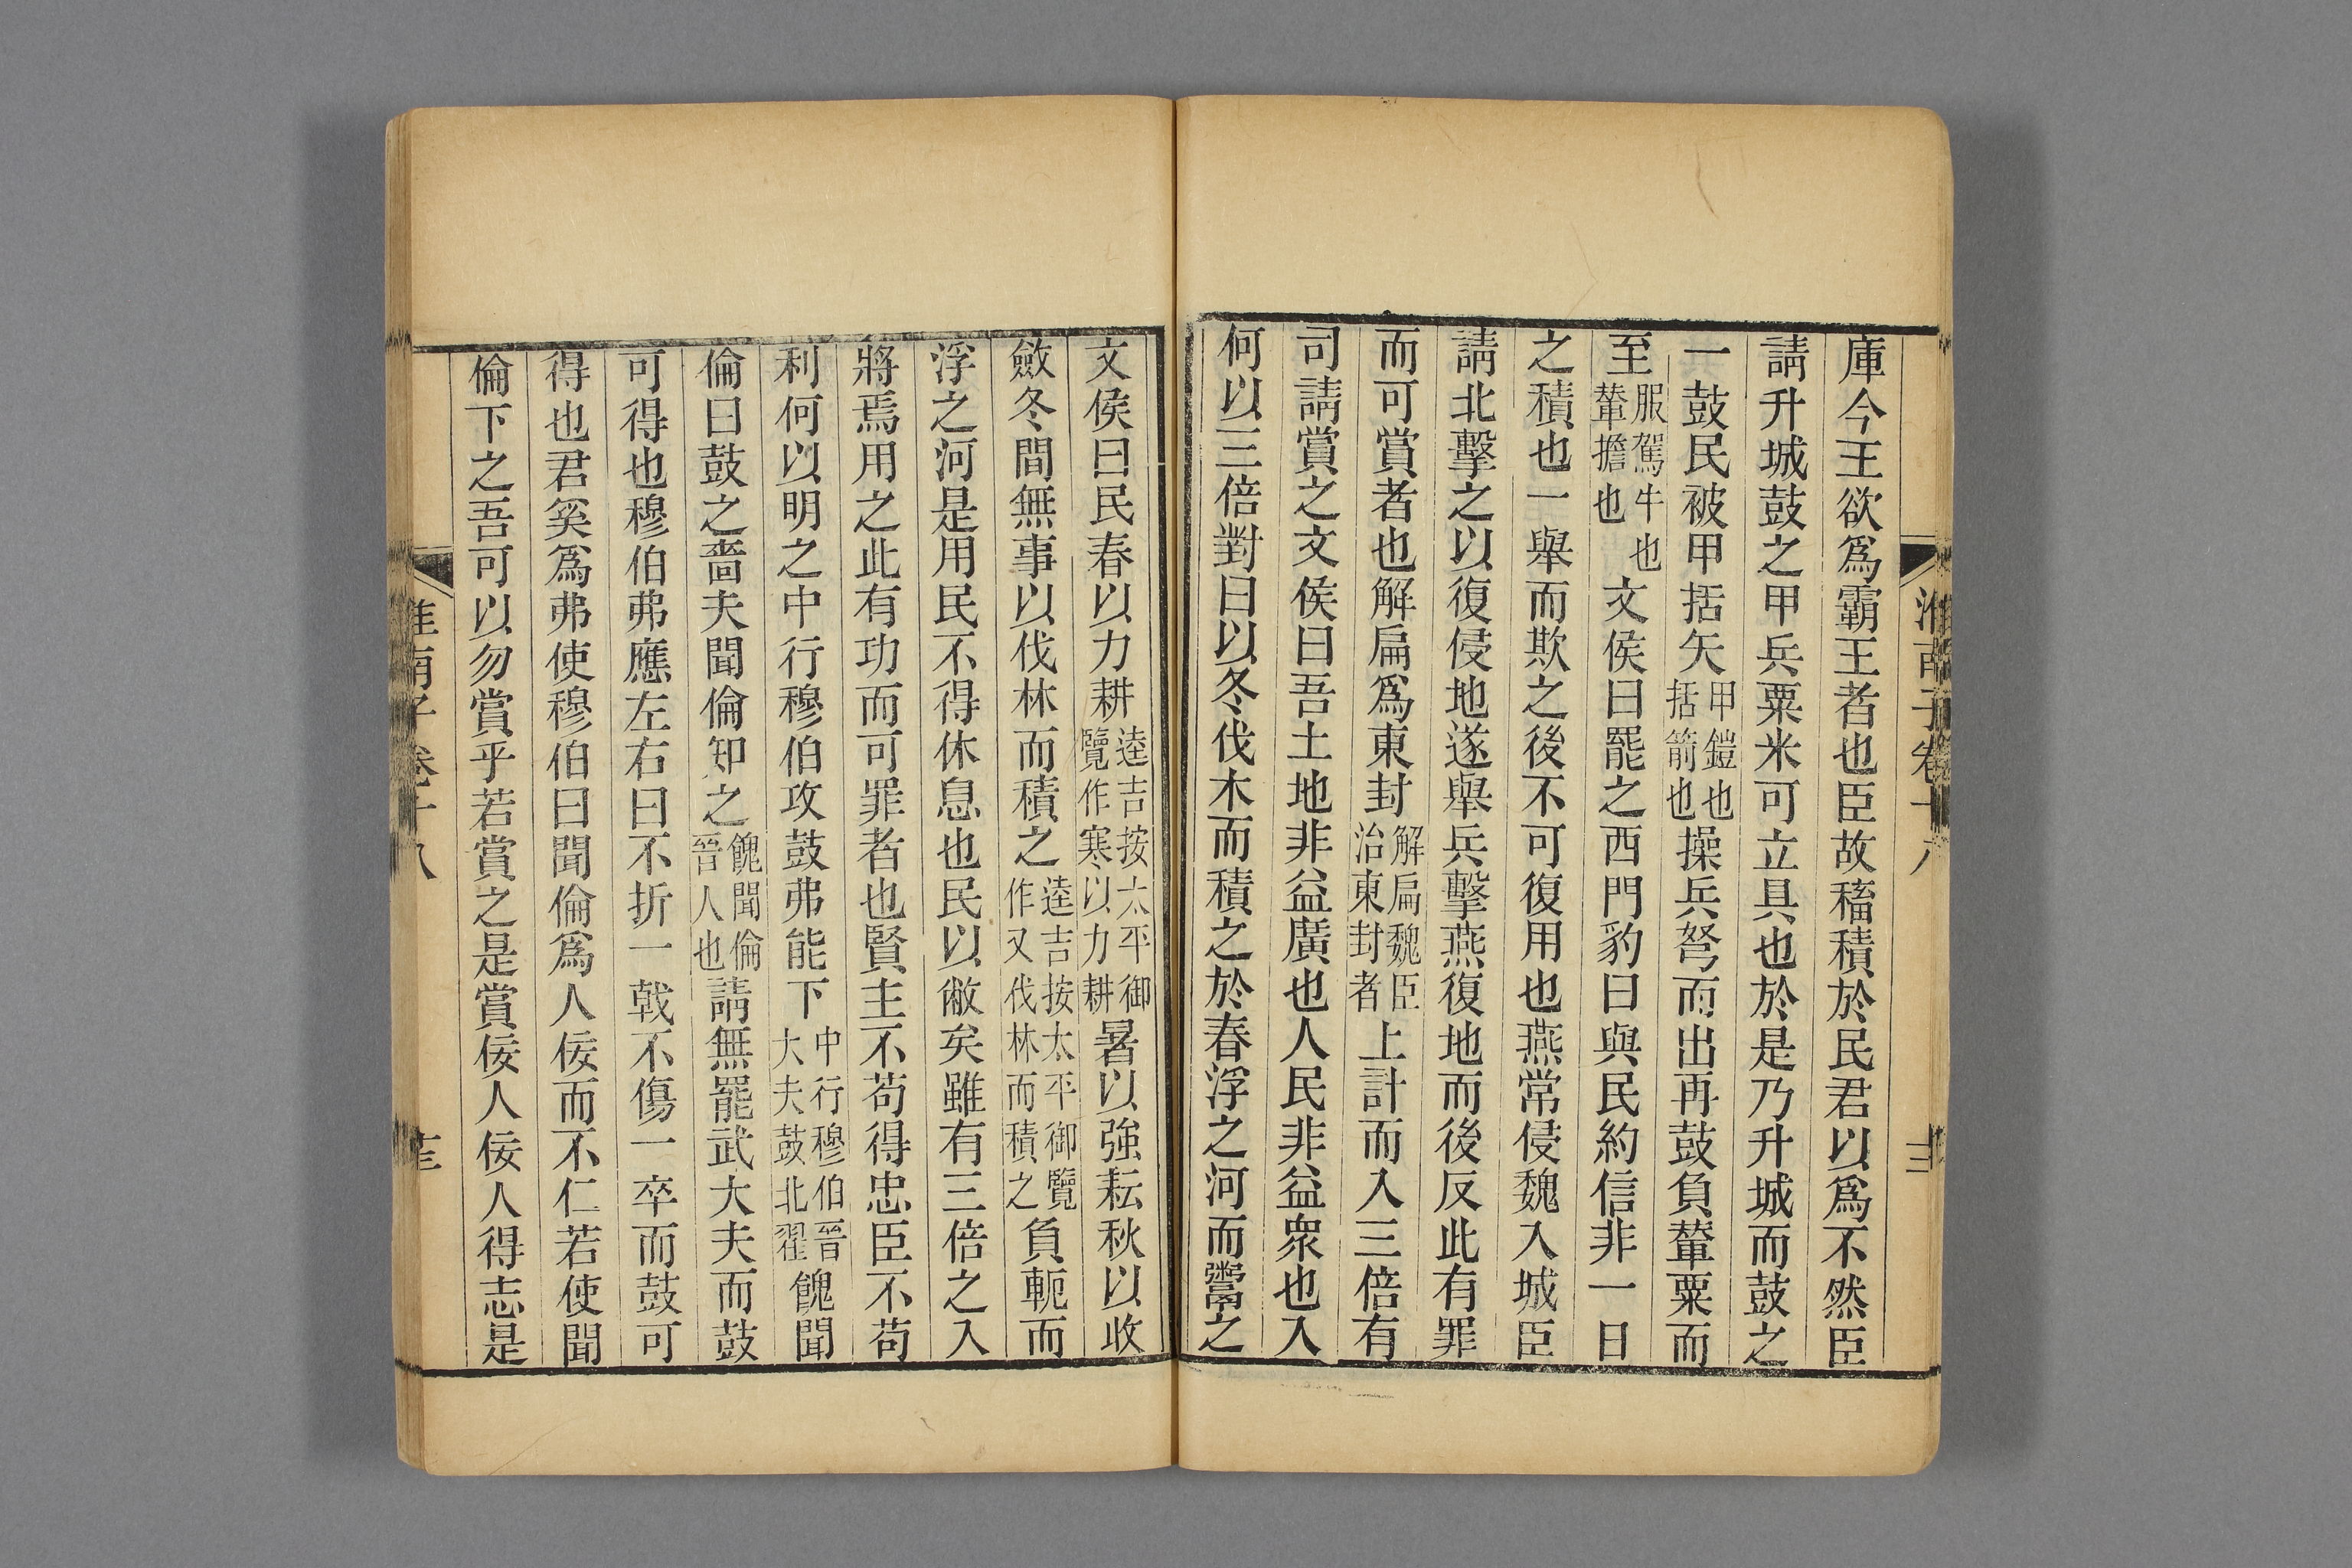 淮南子卷十八
庫今王欲爲霸王者也臣故稸積於民君以爲不然臣
請升城鼓之甲兵粟米可立具也於是乃升城而鼓之
一鼓民被甲括矢甲鎧也括箭也操兵弩而出再鼓負輦粟而
至服駕牛也輦擔也文侯曰罷之西門豹曰與民約信非一日
之積也一舉而欺之後不可復用也燕常侵魏入城臣
請北擊之以復侵地遂舉兵擊燕復地而後反此有罪
而可賞者也解扁爲東封解扁魏臣治東封者上計而入三倍有
司請賞之文侯曰吾土地非益廣也人民非益衆也入
何以三倍對曰以冬伐木而積之於春浮之河而鬻之
文侯曰民春以力耕逵吉按太平御覽作寒以力耕暑以強耘秋以收
斂冬間無事以伐林而積之逵吉按太平御覽作又伐林而積之負軛而
浮之河是用民不得休息也民以敝矣雖有三倍之入
將焉用之此有功而可罪者也賢主不苟得忠臣不苟
利何以明之中行穆伯攻鼓弗能下中行穆伯晉大夫鼓北翟餽聞
倫曰鼓之嗇夫聞倫知之餽聞倫晉人也請無罷武大夫而鼓
可得也穆伯弗應左右曰不折一戟不傷一卒而鼓可
得也君奚爲弗使穆伯曰聞倫爲人佞而不仁若使聞
倫下之吾可以勿賞乎若賞之是賞佞人佞人得志是
淮南子卷十八